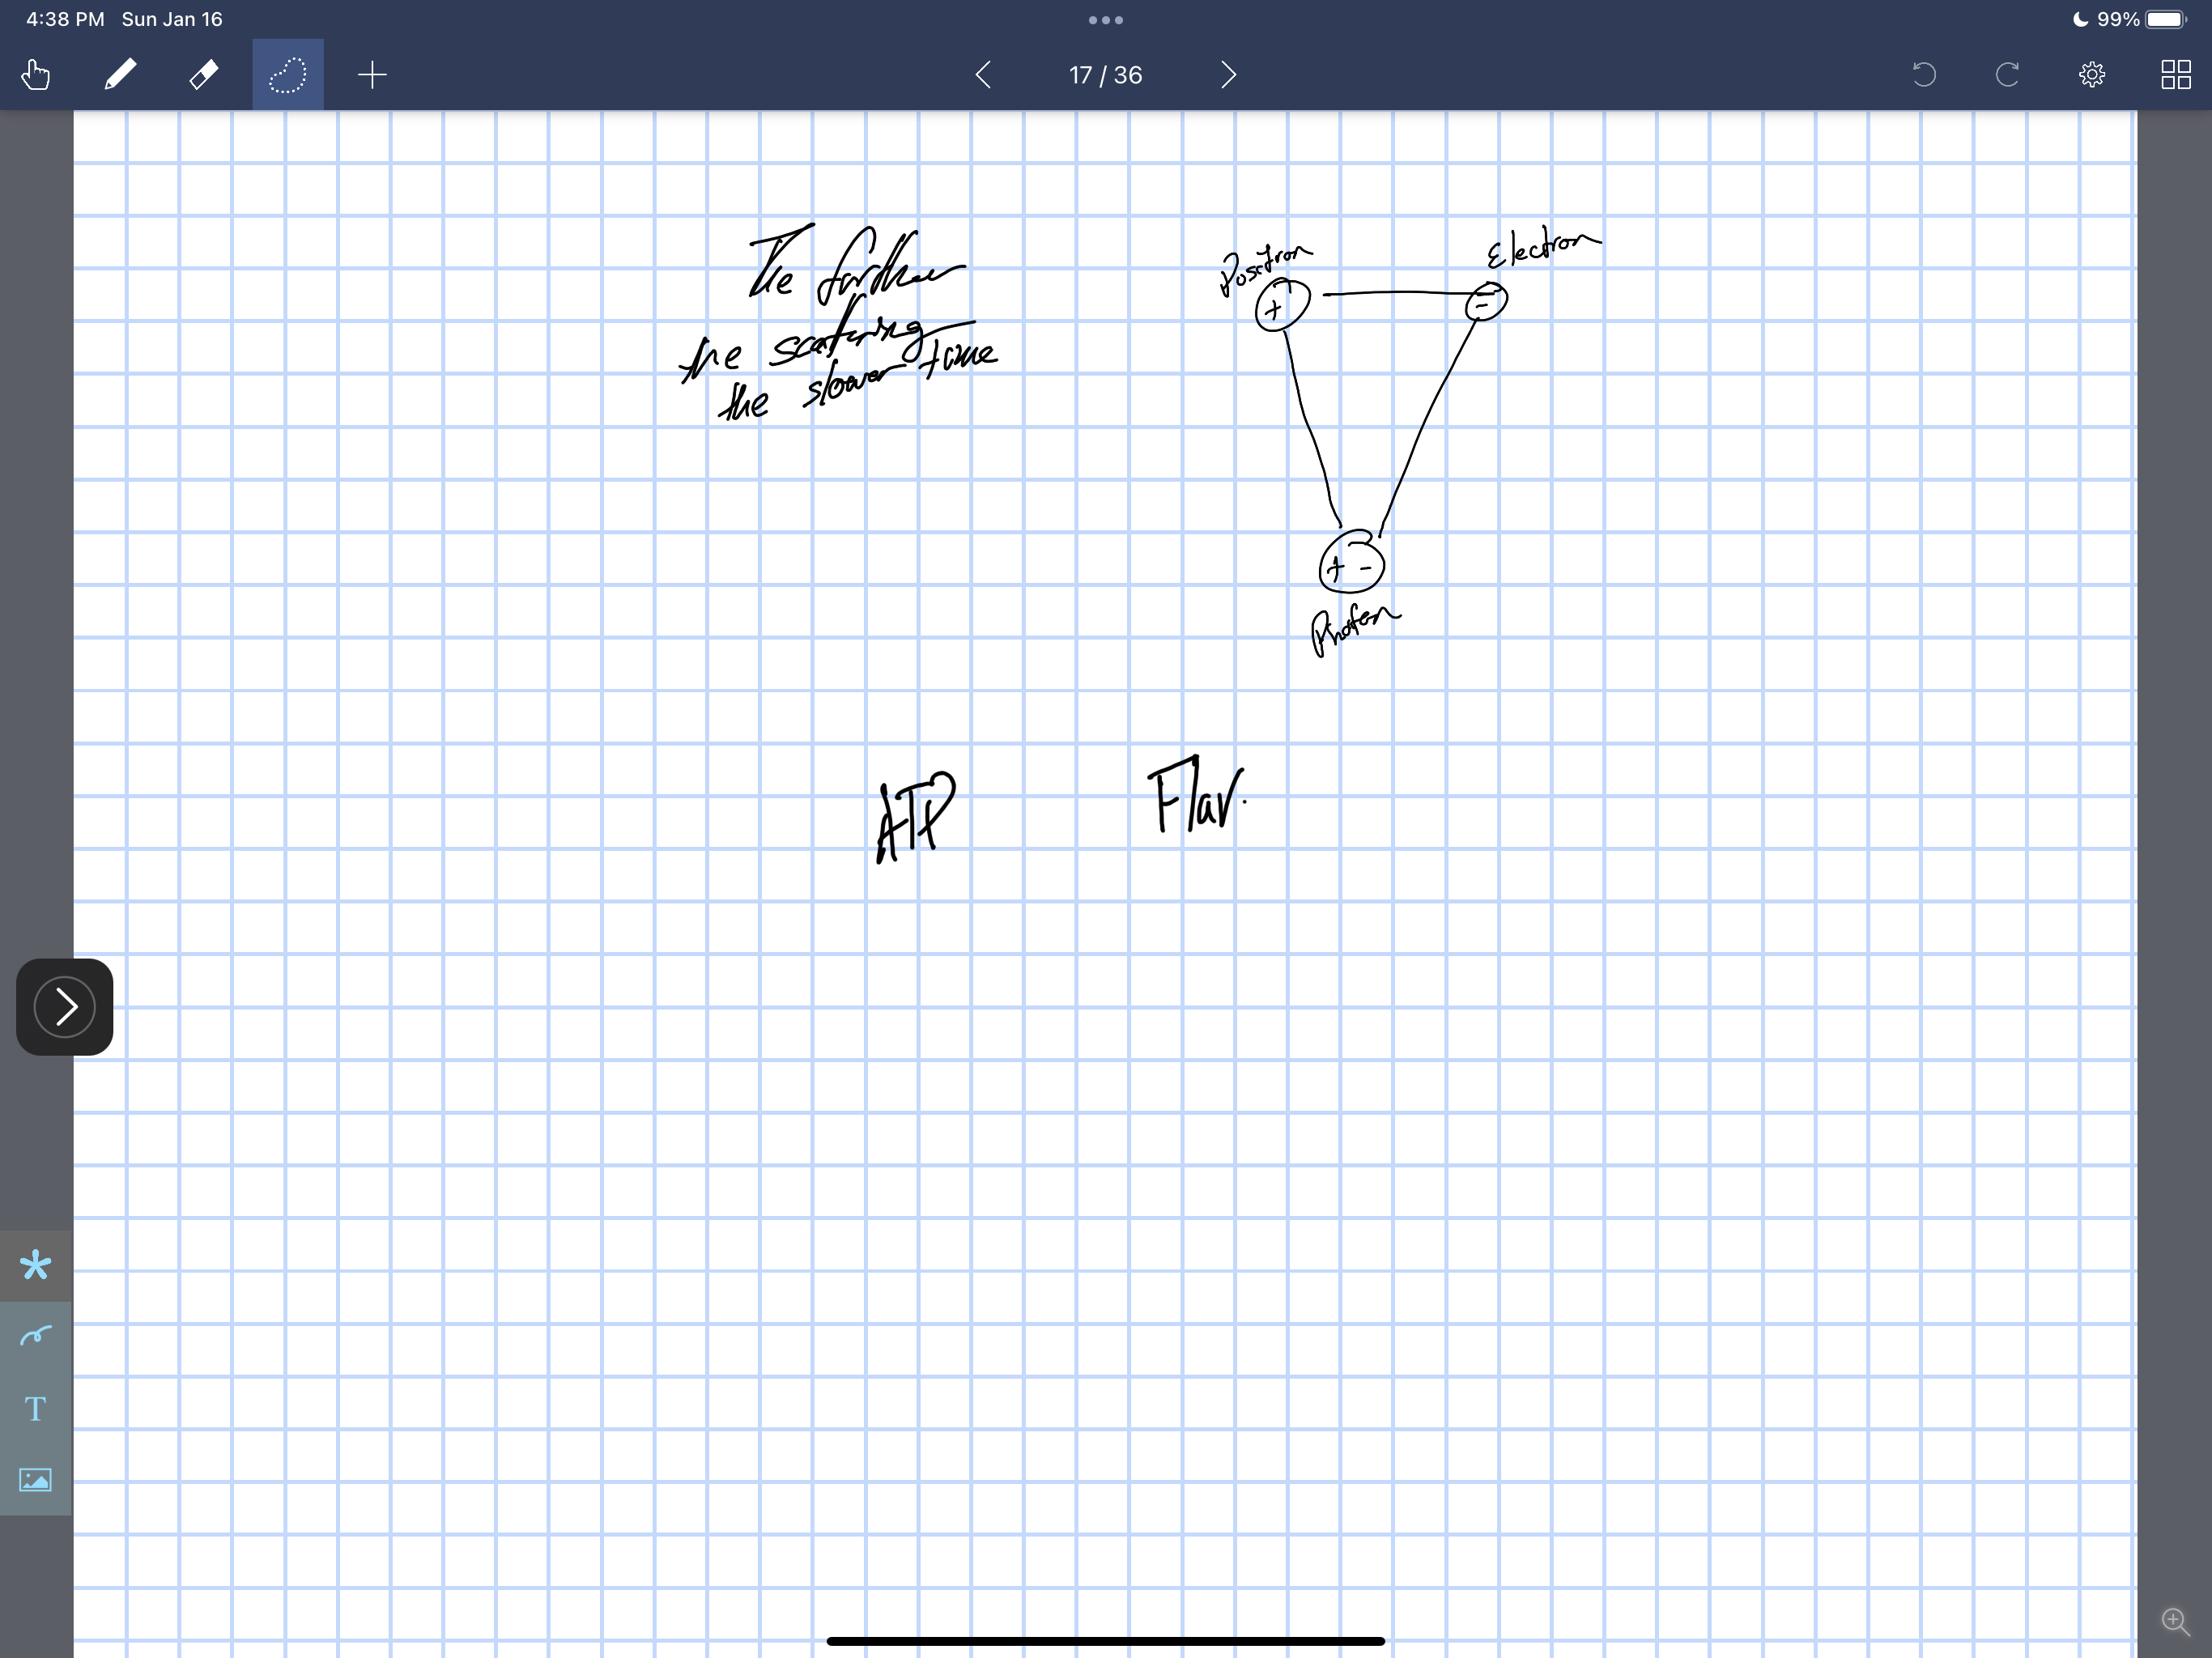 4:38 PM Sun Jan 16
99%
17 / 36
The further
the
the slower time
Positron
Electron
+
-
+ -
Photon
ATP
Flav.
T